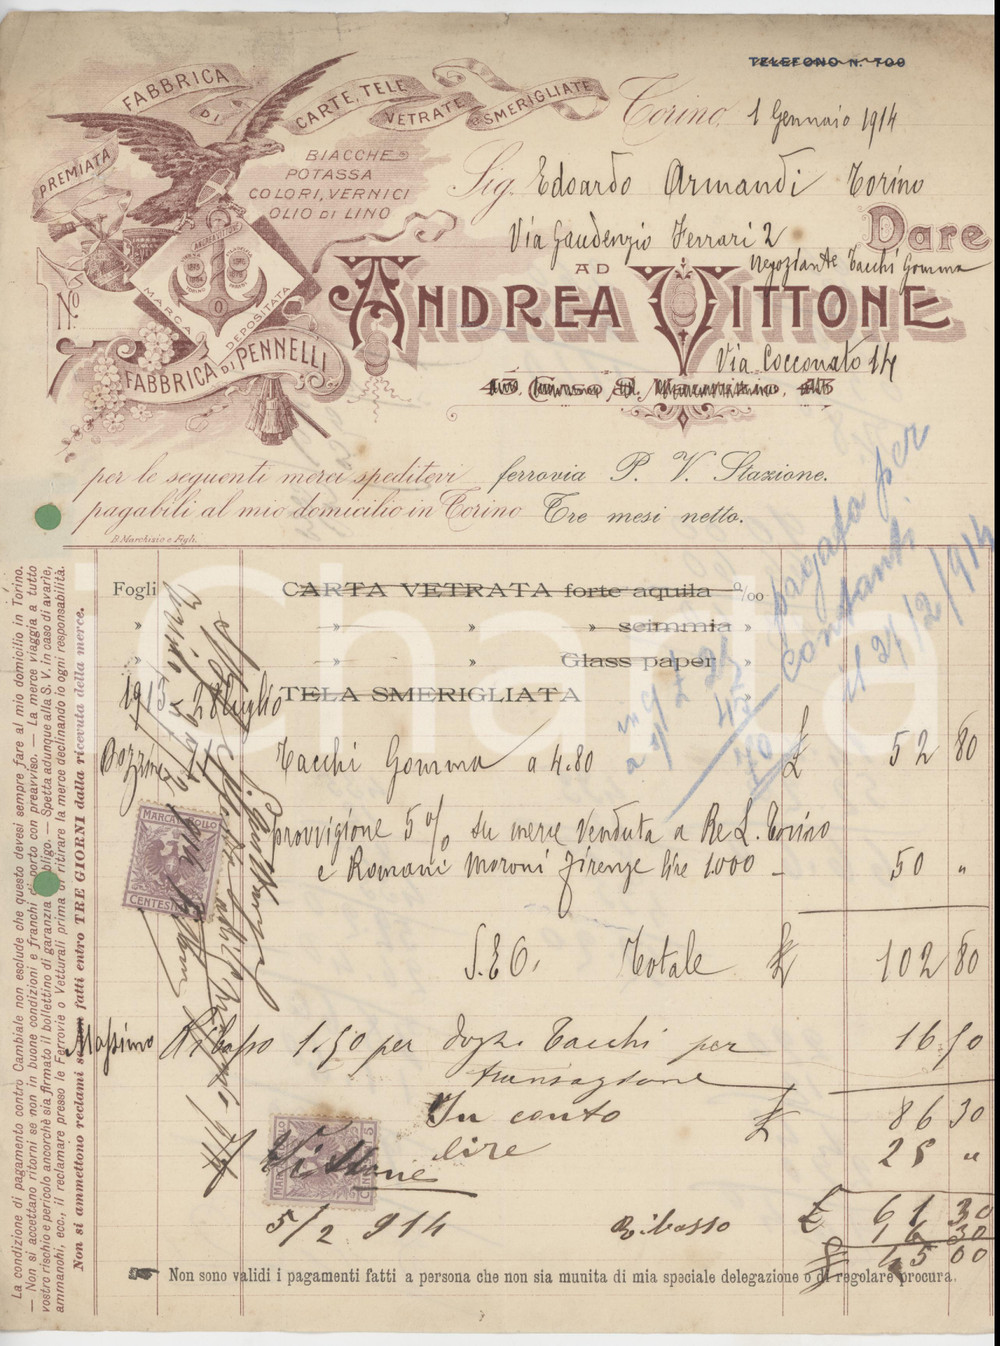 TELEFONO N. 700
PREMIATA
FABBRICA
DI
CARTE, TELE
VETRATE
E SMERIGLIATE
BIACCHE
POTASSA
COLORI, VERNICI
OLIO DI LINO
MARCA DEPOSITATA
FABBRICA DI PENNELLI
Torino, 1 Gennaio 1914
Sig. Edoardo Armandi Torino
Via Gaudenzio Ferrari 2
Dare
AD
negoziante Tacchi Gomma
ANDREA VITTONE
No.
Via Cocconato 14
per le seguenti merci speditevi ferrovia P. V. Stazione.
pagabili al mio domicilio in Torino Tre mesi netto.
B. Marchisio e Figli.
pagata per
contanti
il 27/2/914
Fogli CARTA VETRATA forte aquila %00
» » » » scimmia »
» » » Glass paper »
TELA SMERIGLIATA
25
45
70
1913 28 Luglio
Tacchi Gomma a 4.80 £ 52 80
provvigione 5% su merce venduta a Re L. Torino
e Romani Moroni Firenze lire 1.000 - 50 "
S.E.O. Totale £ 102 80
Massimo Ribasso 1.50 per Tacchi per 16.50
transazione
In conto £ 86 30
lire 25 "
MARCA DA BOLLO
CENTESIMI
Vittone
5/2 914
Ribasso
£ 61 30
16 30
£ 45 00
Non sono validi i pagamenti fatti a persona che non sia munita di mia speciale delegazione o di regolare procura.
La condizione di pagamento contro Cambiale non esclude che questo devesi sempre fare al mio domicilio in Torino.
— Non si accettano ritorni se non in buone condizioni e franchi di porto con preavviso. — La merce viaggia a tutto
vostro rischio e pericolo ancorchè sia firmato il bollettino di garanzia obbligo. — Spetta adunque alla S. V. in caso di avarie,
ammanchi, ecc., il reclamare presso le Ferrovie o Vetturali prima di ritirare la merce declinando io ogni responsabilità.
Non si ammettono reclami se non fatti entro TRE GIORNI dalla ricevuta della merce.
Charta